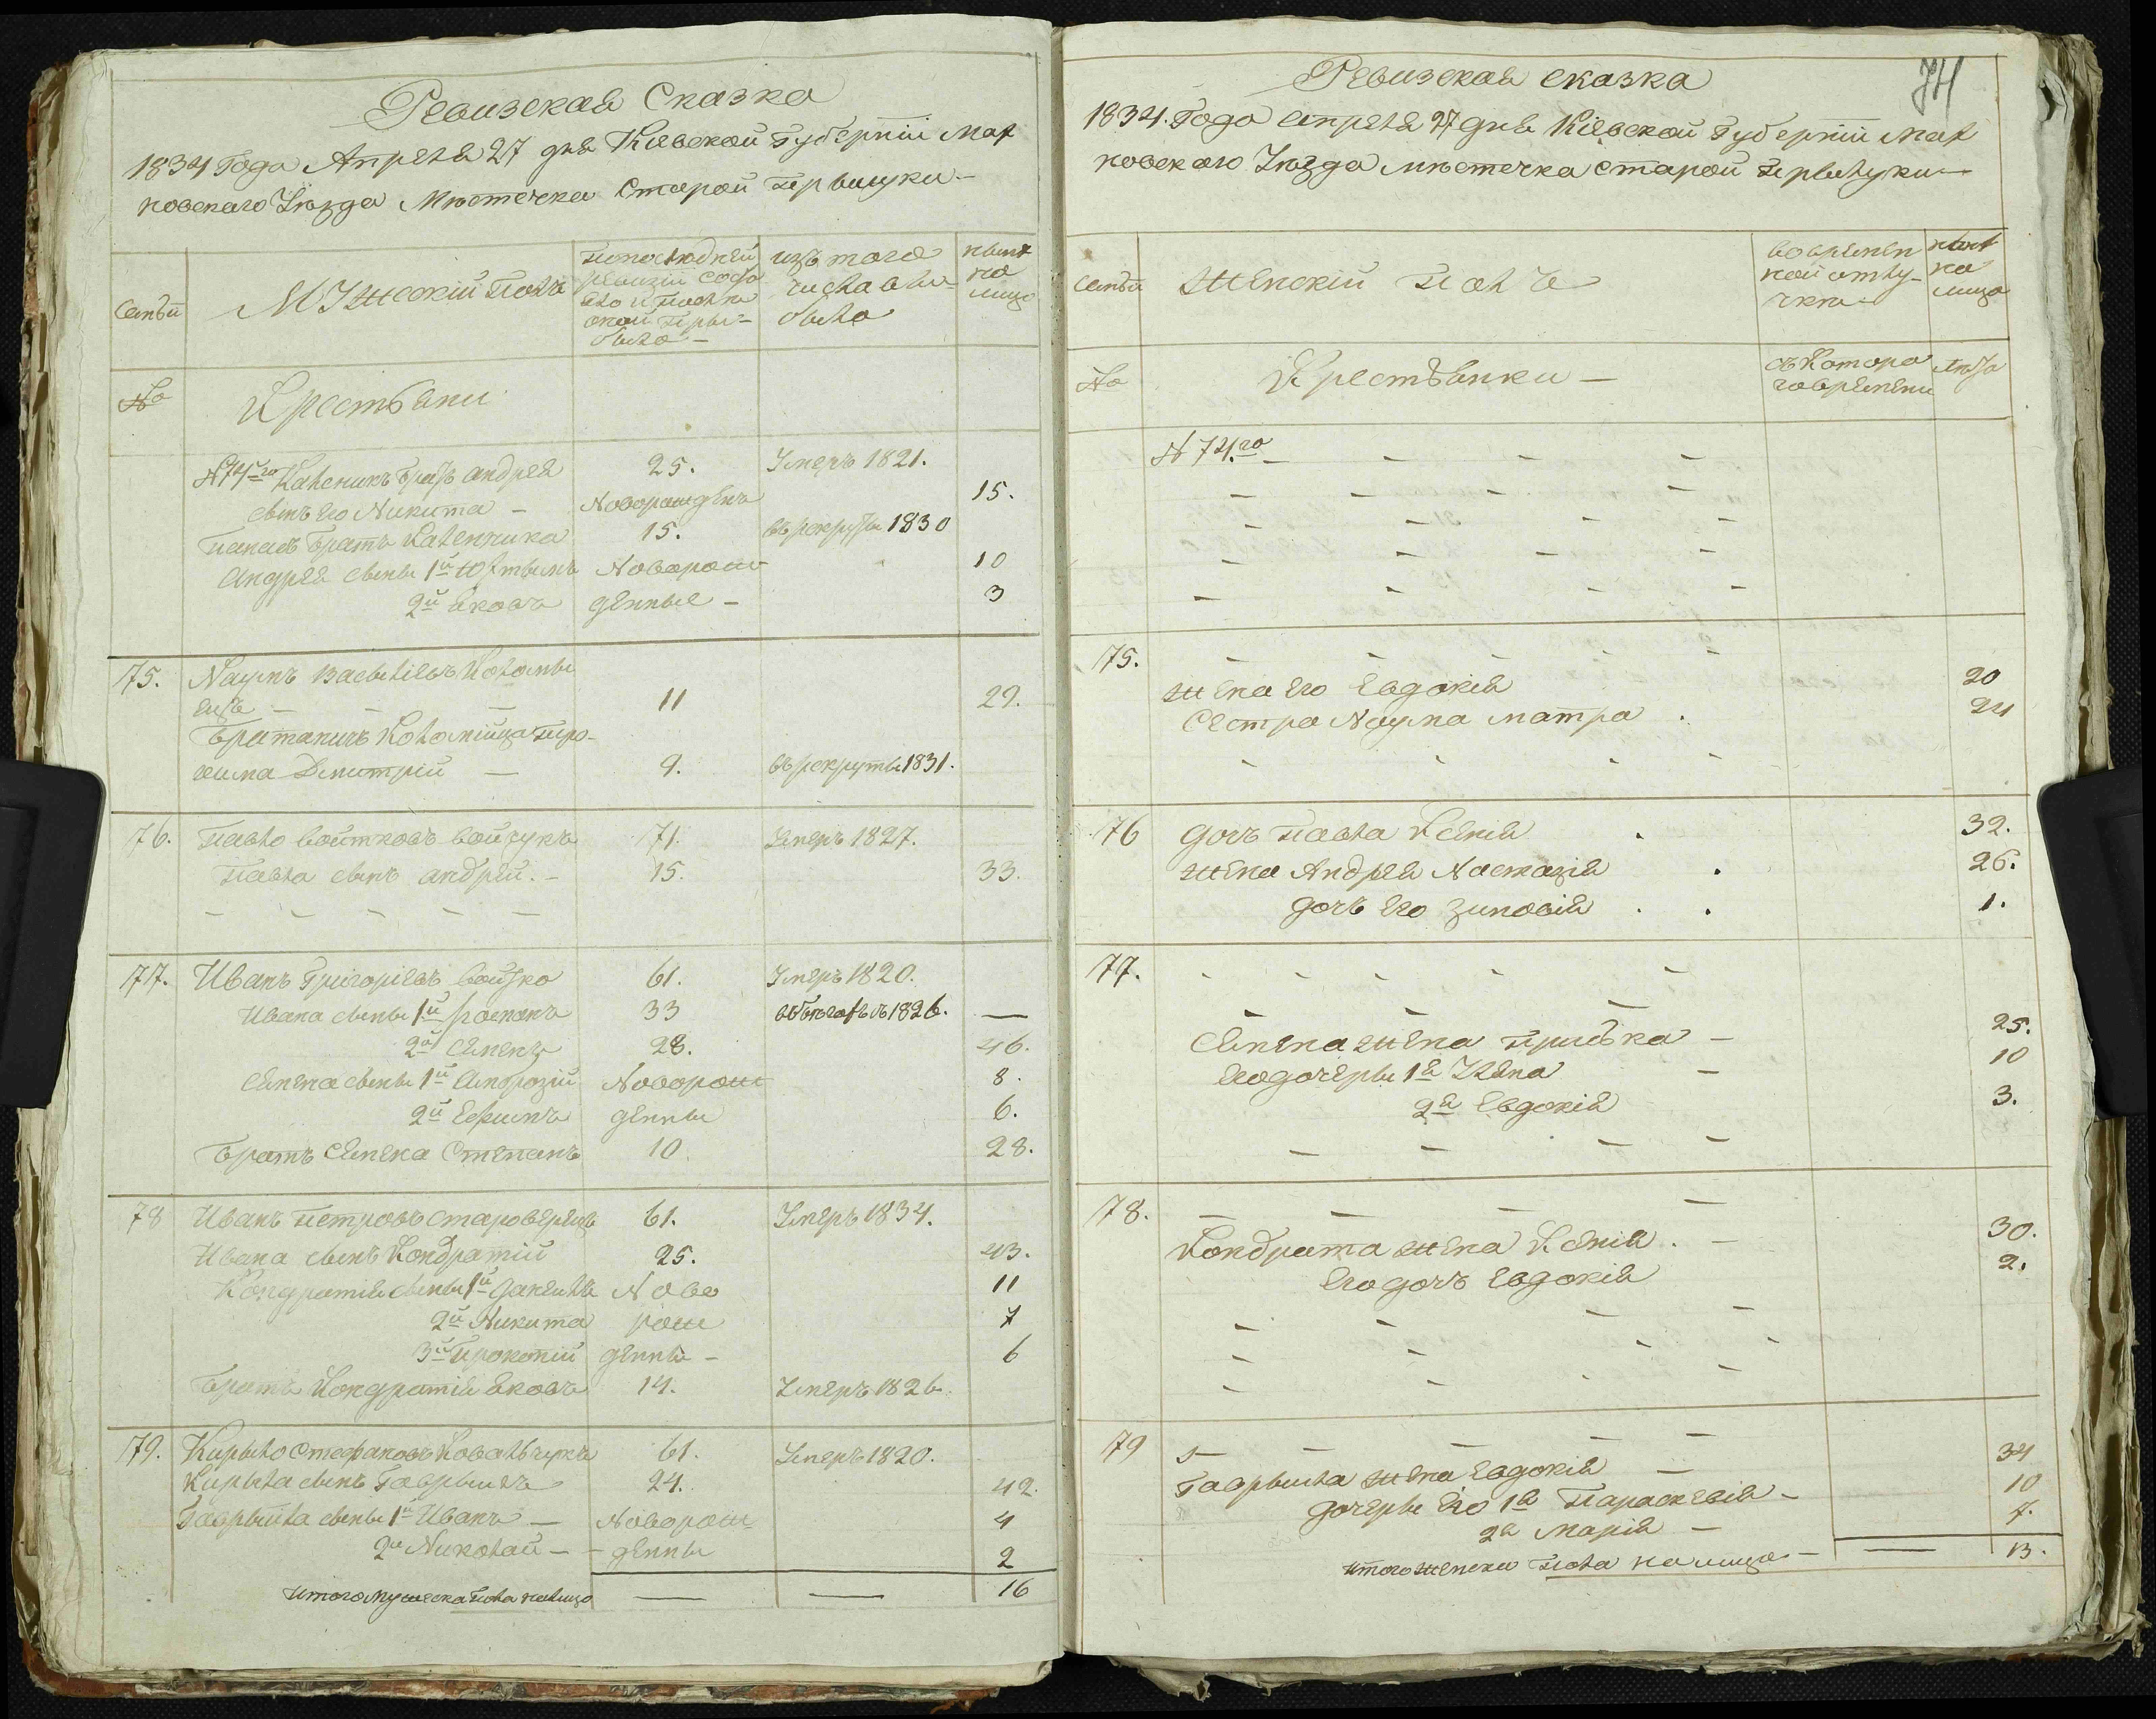 Ревизская Сказка
1834 Года Апреля 27 дня Кіевской Губерніи Мах
новского Уезда Местечка Старой Прилуки
семьи
Мужескій Полъ
по последней
ревизіи состо
яло и после
оной прибыло
изъ того
числа вы-
было
ныне
на
лицо
№
Крестьяни
№ 74го Каленикъ братъ андрея 25. Умеръ 1821.
сынъ его Никита - Новорожденъ 15.
Панасъ братъ Каленика 15. въ рекруты 1830
андрея сыны 1й Юхтымъ Новорож 10
2й Яковъ денные - 3
75. Наумъ Васылїевъ Коломы
ецъ 11 29.
братаничъ Коломійца Про-
кима Дмитрій 9. въ рекруты 1831.
76. Павло войтковъ войчукъ 71. Умеръ 1827.
Павла сынъ андрей. - 15. 33.
77. Иванъ Григоріевъ войтко 61. Умеръ 1820.
Ивана сыны 1й романъ 33 въ бегахъ съ 1826. —
2й Семенъ 28. 46.
Семена сыны 1й Амврозій Новорож 8.
2й Ефимъ денны 6.
братъ Семена Степанъ 10 28.
78 Иванъ Петровъ староверецъ 61. Умеръ 1834.
Ивана сынъ Кондратій 25. 43.
Кондратія сыны 1й Данеилъ Ново 11
2й Никита рож 7
3й Прокопій денны - 6
братъ Кондратія Яковъ 14. Умеръ 1826.
79. Кирыло Стефановъ Ковальчукъ 61. Умеръ 1820.
Кирыла сынъ Гаврыилъ 24. 42.
Гаврыила сыны 1й Иванъ — Новорож 4
2й Николай — денны 2
Итого мужеска пола налицо — — 16
74
Ревизская сказка
1834. Года апреля 27 дня Кіевской Губерніи Мах
новского Уезда местечка старой Прилуки
семьи
женскій полъ
во времен
ной отлу-
чке
ныне
на
лицо
№
Крестьянки —
съ Котора
го времени
лета
№ 74го
75.
жена его Евдокія 20
Сестра Наума матра 24
76 дочъ Павла Ксенія 32.
жена Андрея Настазія 26.
дочъ его Зиновія 1.
77.
Семена жена Приська — 25.
его дочеры 1я Уляна 10
2я Евдокія 3.
78.
Кондрата жена Ксенія 30.
его дочъ Евдокія 2.
79
Гаврыила жена Евдокія — 34
дочеры его 1я Параскевія — 10
2я Марія — 7.
Итого женска пола налицо — — 13.